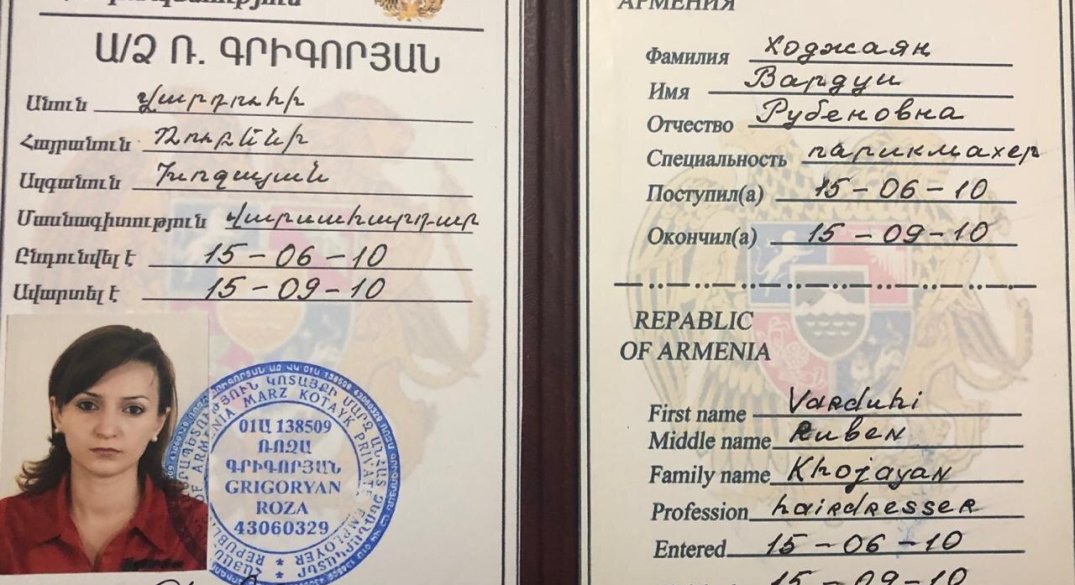 Ա/Ձ Ռ. ԳՐԻԳՈՐՅԱՆ
Անուն Վարդուհի
Հայրանուն Ռուբենի
Ազգանուն Խոջայան
Մասնագիտություն վարսահարդար
Ընդունվել է 15-06-10
Ավարտել է 15-09-10
01Ա 138509
ՌՈԶԱ
ԳՐԻԳՈՐՅԱՆ
GRIGORYAN
ROZA
43060329
АРМЕНИЯ
Фамилия Ходжаян
Имя Вардуи
Отчество Рубеновна
Специальность парикмахер
Поступил(а) 15-06-10
Окончил(а) 15-09-10
REPABLIC
OF ARMENIA
First name Varduhi
Middle name Ruben
Family name Khojayan
Profession hairdresser
Entered 15-06-10
15-09-10